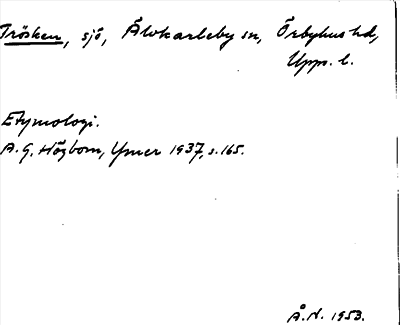 Trösken, sjö, Älvkarleby sn, Örbyhus hd,
Upps. l.
Etymologi.
A. G. Högbom, Ymer 1937, s. 165.
Å. N. 1953.